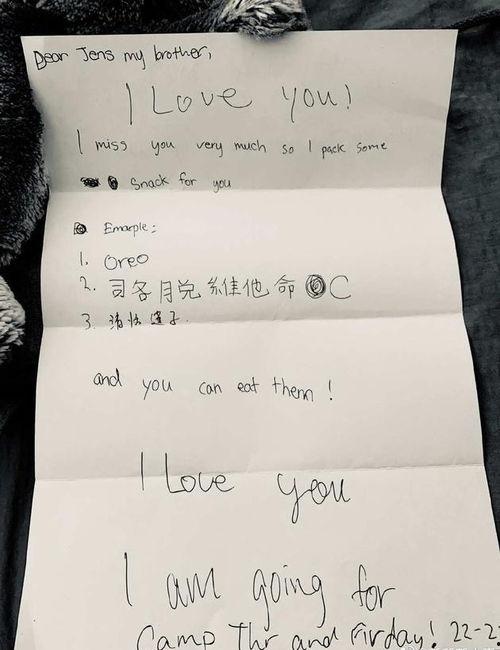 Dear Jens my brother,
I Love you!
I miss you very much so I pack some
Snack for you
Emarple:
1. Oreo
2. 司各月兑維他命 C
3. 清快
and you can eat them !
I Love you
I am going for
Camp Thr and Firday! 22-2